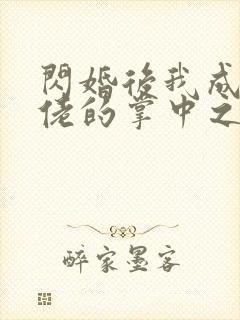 閃婚後我成
佬的掌中之
醉家墨客